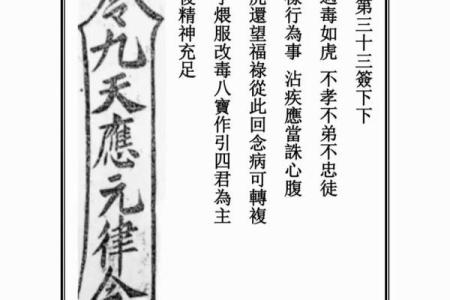 第三十三簽下下
毒如虎 不孝不弟不忠徒
樣行為事 沾疾應當誅心腹
還望福祿從此回念病可轉複
煨服改毒八寶作引四君為主
精神充足
九天應元律令